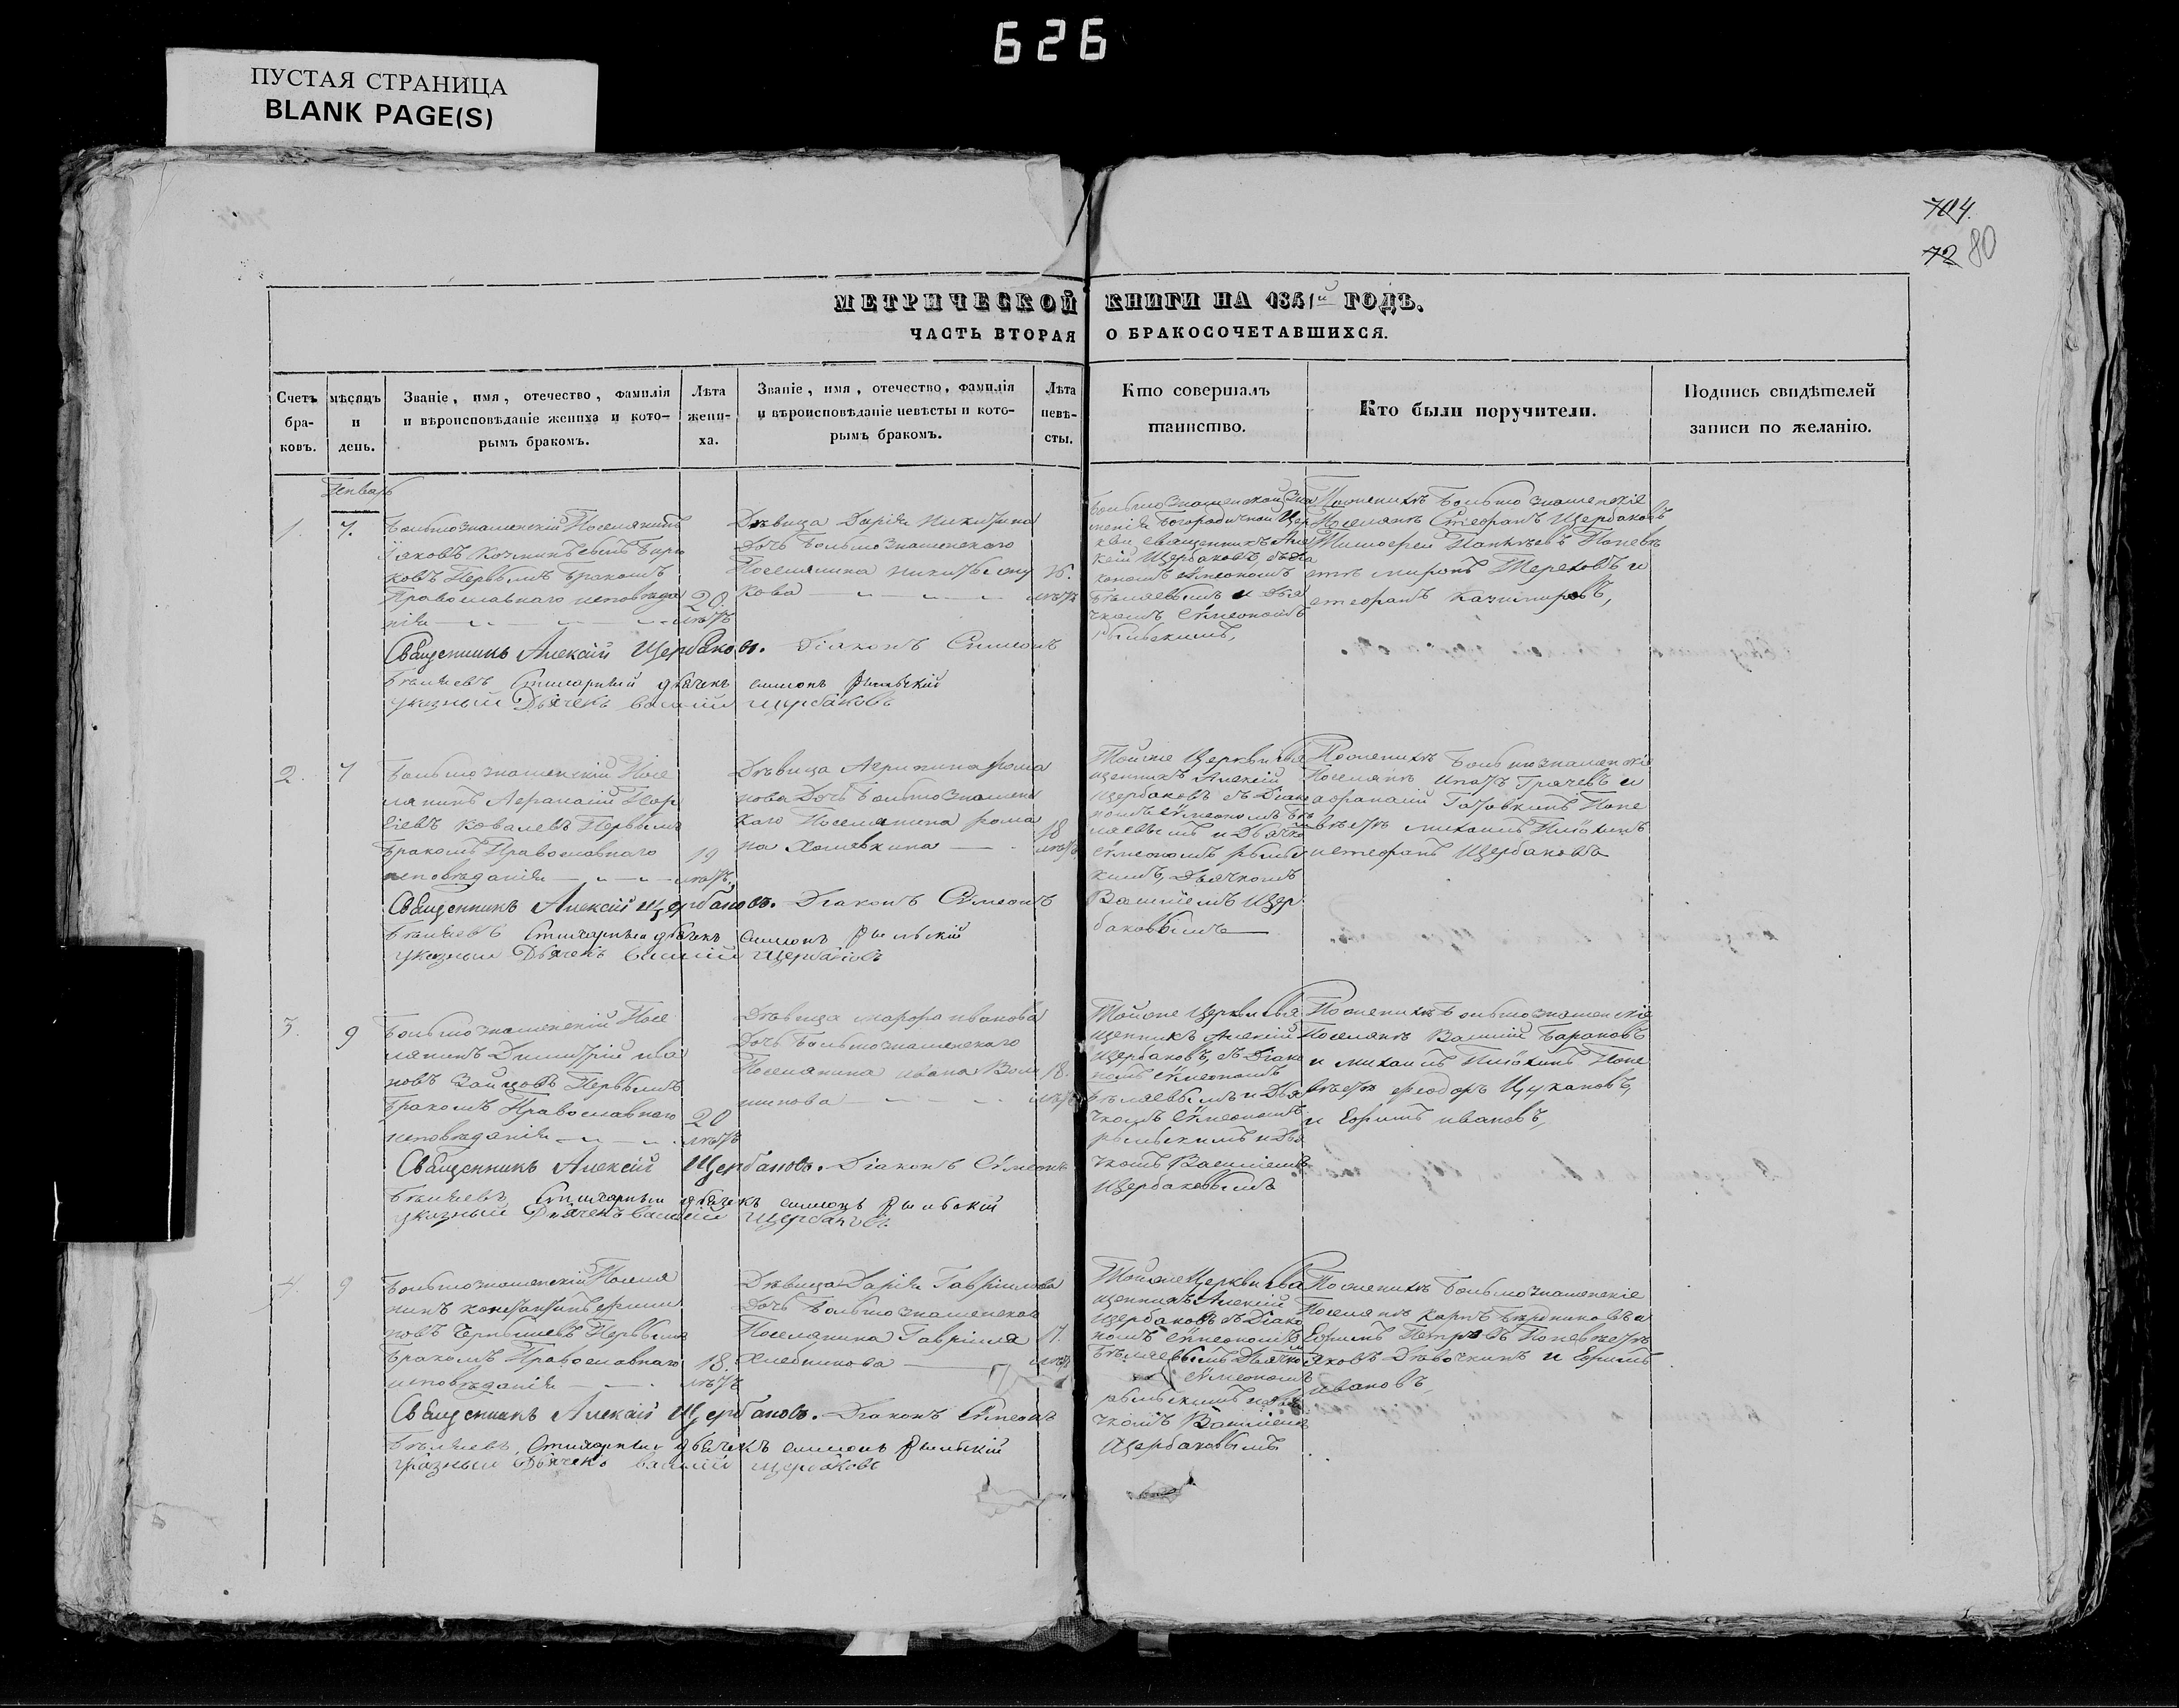 626
ПУСТАЯ СТРАНИЦА
BLANK PAGE(S)
704.
72 80
МЕТРИЧЕСКОЙ КНИГИ НА 1841й ГОДЪ.
ЧАСТЬ ВТОРАЯ О БРАКОСОЧЕТАВШИХСЯ.
Счетъ бра-ковъ.
мѣсяцъ и день.
Званіе, имя, отечество, фамилія
и вѣроисповѣданіе жениха и кото-
рымъ бракомъ.
Лѣта
жени-
ха.
Званіе, имя, отечество, фамилія
и вѣроисповѣданіе невѣсты и кото-
рымъ бракомъ.
Лѣта
невѣ-
сты.
Кто совершалъ
таинство.
Кто были поручители.
Подпись свидѣтелей
записи по желанію.
Генварь
1. 7.
Большознаменскій Поселянинъ
Іаковъ
ковъ Первымъ Бракомъ
Православнаго исповѣда
нія
20
лѣтъ
Дѣвица Дарія Никитина
Дочь Большознаменскаго
Поселянина Никиты
кова
16.
лѣтъ
Большознаменской Зна
менія Богородичной Цер
кви священникъ Але
ксій Щербаковъ, съ Діа
кономъ Сѵмеономъ
Бѣляевымъ и Дья
чкомъ Сѵмеономъ
Рыльскимъ,
По женихѣ Большознаменскіе
Поселяне Стефанъ Щербаковъ
Тимофей По невѣ
стѣ Миронъ Тереховъ и
Стефанъ Казимировъ,
Священникъ Алексій Щербаковъ. Діаконъ Симеонъ
Бѣляевъ Стихарный дьячекъ Симеонъ Рыльскій
указный Дьячекъ Василій Щербаковъ
2. 7
Большознаменскій Посе
лянинъ Афанасій
Ковалевъ Первымъ
Бракомъ Православнаго
исповѣданія
19
лѣтъ,
Дѣвица Агрипина Рома
нова Дочь Большознаменс
каго Поселянина Рома
на Холявкина
18
лѣтъ
Тойже Церкви Свя
щенникъ Алексій
Щербаковъ съ Діако
номъ Сѵмеономъ Бѣ
ляевымъ и Дьячко
Сѵмеономъ Рыльс
кимъ, Дьячкомъ
Василіемъ Щер
баковымъ
По женихѣ Большознаменскіе
Поселяне Грачевъ и
Афанасій По не
вѣстѣ Михаилъ
и Стефанъ Щербаковъ
Священникъ Алексій Щербаковъ. Діаконъ Сѵмеонъ
Бѣляевъ Стихарный дьячекъ Симеонъ Рыльскій
указный Дьячекъ Василій Щербаковъ
3. 9
Большознаменскій Посе
лянинъ Димитрій Ива
новъ Зайцовъ Первымъ
Бракомъ Православнаго
исповѣданія
20
лѣтъ
Дѣвица Марфа Иванова
Дочь Большознаменскаго
Поселянина Ивана
18.
лѣтъ
Тойже Церкви Свя
щенникъ Алексій
Щербаковъ, съ Діако
номъ Сѵмеономъ
Бѣляевымъ и Дья
чкомъ Сѵмеономъ
Рыльскимъ и Дья
чкомъ Василіемъ
Щербаковымъ
По женихѣ Большознаменскіе
Поселяне Василій Барановъ
и Михаилъ По не
вѣстѣ Феодоръ Цукановъ,
и Ефимъ Ивановъ,
Священникъ Алексій Щербаковъ. Діаконъ Сѵмеонъ
Бѣляевъ, Стихарный дьячекъ Симеонъ Рыльскій
указный Дьячекъ Василій Щербаковъ
4. 9
Большознаменскій Поселя
нинъ Константинъ
новъ Чернышевъ Первымъ
Бракомъ Православнаго
исповѣданія
18.
лѣтъ
Дѣвица Дарія Гавріилова
Дочь Большознаменскаго
Поселянина Гавріила
Хлебникова
17.
лѣтъ
Тойже Церкви Свя
щенникъ Алексій
Щербаковъ съ Діако
номъ Сѵмеономъ
Бѣляевымъ Дьячко
Сѵмеономъ
Рыльскимъ и Дья
чкомъ Василіемъ
Щербаковымъ
По женихѣ Большознаменскіе
Поселяне Карпъ Бѣрдниковъ и
Ефимъ Петровъ По невѣстѣ
Яковъ Дѣвочкинъ и Ефимъ
Ивановъ,
Священникъ Алексій Щербаковъ. Діаконъ Сѵмеонъ
Бѣляевъ, Стихарный дьячекъ Симеонъ Рыльскій
указный Дьячекъ Василій Щербаковъ